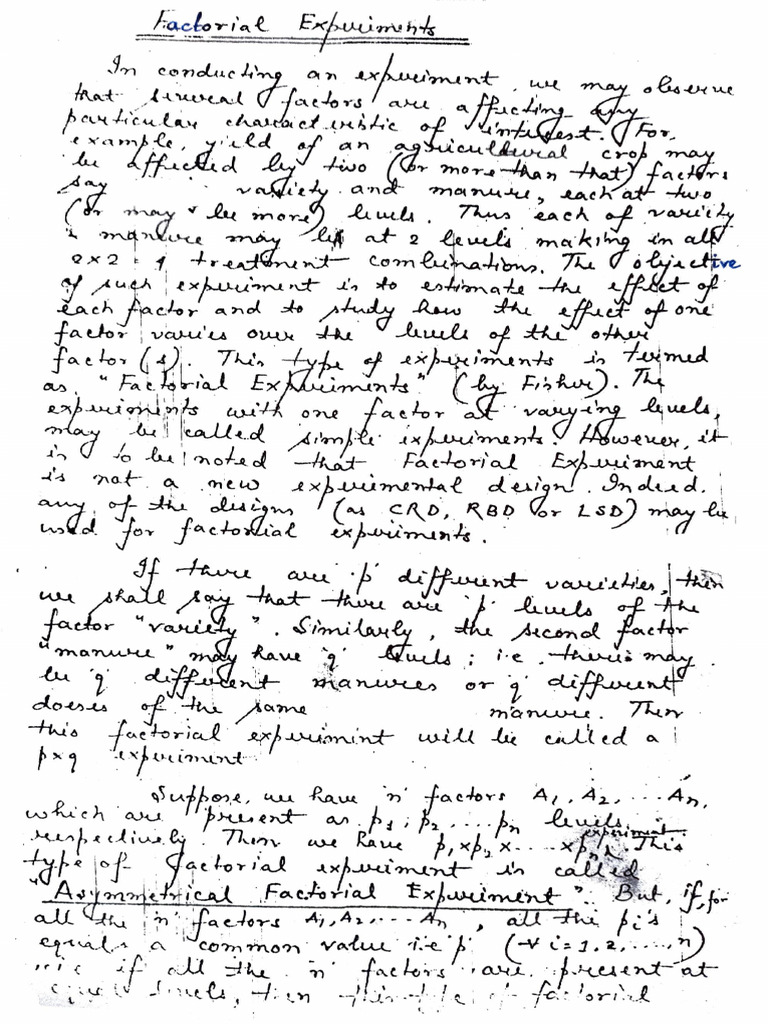 Factorial Experiments
In conducting an experiment, we may observe
that several factors are affecting any
particular characteristic of interest. For
example, yield of an agricultural crop may
be affected by two (or more than that) factors
say variety and manure, each at two
(or may be more) levels. Thus each of variety
& manure may be at 2 levels making in all
2x2=4 treatment combinations. The objective
of such experiment is to estimate the effect of
each factor and to study how the effect of one
factor varies over the levels of the other
factor(s). This type of experiments is termed
as "Factorial Experiments" (by Fisher). The
experiments with one factor at varying levels,
may be called simple experiments. However, it
is to be noted that Factorial Experiment
is not a new experimental design. Indeed.
any of the designs (as CRD, RBD or LSD) may be
used for factorial experiments.
If there are 'p' different varieties, then
we shall say that there are 'p' levels of the
factor "variety". Similarly, the second factor
"manure" may have 'q' levels; i.e. there may
be 'q' different manures or 'q' different
doeses of the same manure. Then
this factorial experiment will be called a
pxq experiment
Suppose, we have 'n' factors A1, A2, ... An,
which are present as p1, p2, ... pn levels,
respectively. Then we have p1xp2x....xpn experiment. This
type of factorial experiment is called
"Asymmetrical Factorial Experiment". But, if, for
all the 'n' factors A1, A2, ... An, all the pi's
equals a common value i.e 'p' (∀ i=1,2,....,n)
i.e if all the 'n' factors are present at
equal levels, then this type of factorial